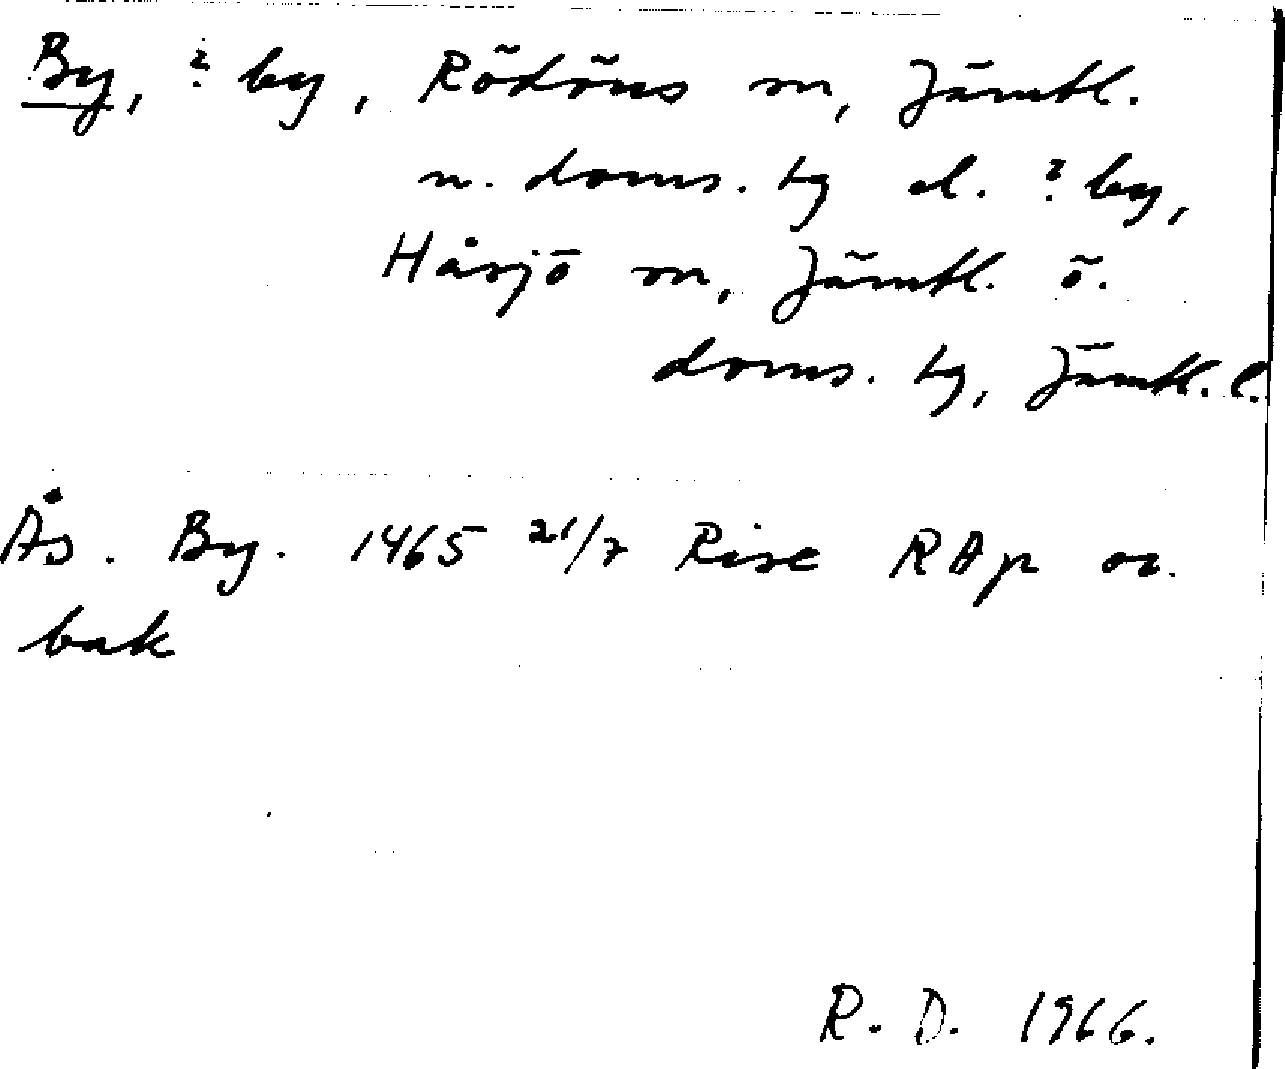 By, ? by, Rödöns sn, Jämtl.
n. doms. tg el. ? by,
Håsjö sn, Jämtl. ö.
doms. tg, Jämtl. l.
Ås. By. 1465 21/7 Rise RAp or.
bak
R. D. 1966.